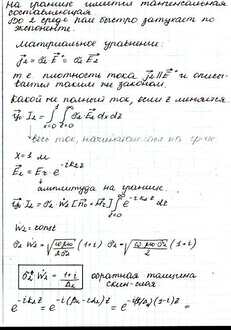 На границе имеется тангенсальная
составляющая.
Во 2 среде поле быстро затухает по
экспоненте.
Материальное уравнение:
j₂ = σ₂ E = σ₂ E₂
т.е. плотность тока j₂ ∥ E и описы-
вается таким же законом.
Какой же полный ток, если z менялся.
I₂ = ∫∫ σ₂ E₂ dx dz
весь ток, начинающийся на гр-це.
X = 1 м
E₂ = E₂ · e^{-ik₂z}
амплитуда на границе.
I₂ = σ₂ W₂ [n₀ × H₂] ∫ e^{-ik₂z} dz
W₂ = const
(1+i)
(1+i)
σ₂ W₂ = (1+i)/Δ₂ обратная толщина
скин-слоя
e^{-ik₂z} =